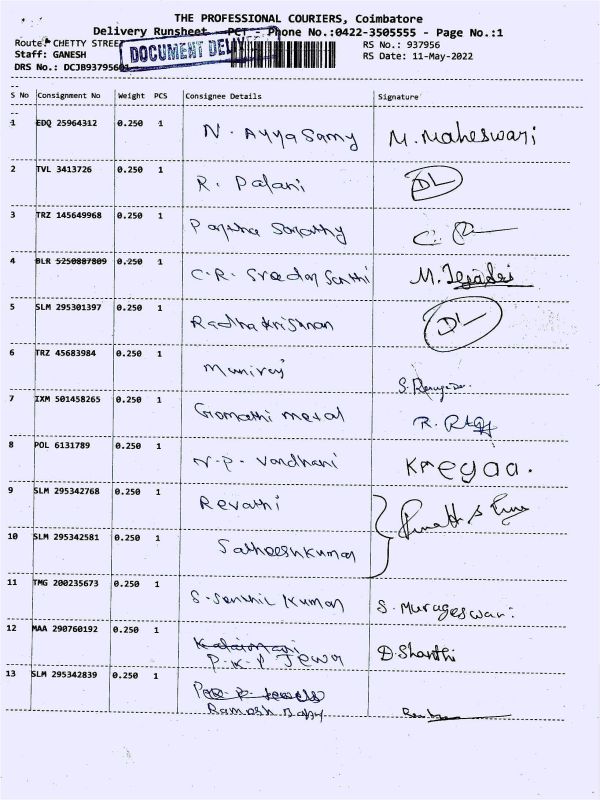 THE PROFESSIONAL COURIERS, Coimbatore
Delivery Runsheet - PCT - Phone No.:0422-3505555 - Page No.:1
Route: CHETTY STREET
RS No.: 937956
Staff: GANESH
RS Date: 11-May-2022
DRS No.: DCJB937956
DOCUMENT
S No Consignment No Weight PCS Consignee Details Signature
1 EDQ 25964312 0.250 1 N. Ayya Samy M. Maheswari
2 TVL 3413726 0.250 1 R. Palani DL
3 TRZ 145649968 0.250 1
4 BLR 5250887809 0.250 1 C.R. M.
5 SLM 295301397 0.250 1 Radha Krishnan DL
6 TRZ 45683984 0.250 1 Muniraj S.
7 IXM 501458265 0.250 1 Gomathi metal R.
8 POL 6131789 0.250 1 N.P. Vardhani
9 SLM 295342768 0.250 1 Revathi
10 SLM 295342581 0.250 1 Satheeshkumar
11 TMG 200235673 0.250 1 S. Senthil Kumar S. Murugeswari
12 MAA 290760192 0.250 1 Kalaimani D. Shanthi
P.K.P Jewr
13 SLM 295342839 0.250 1
Ramesh Baby